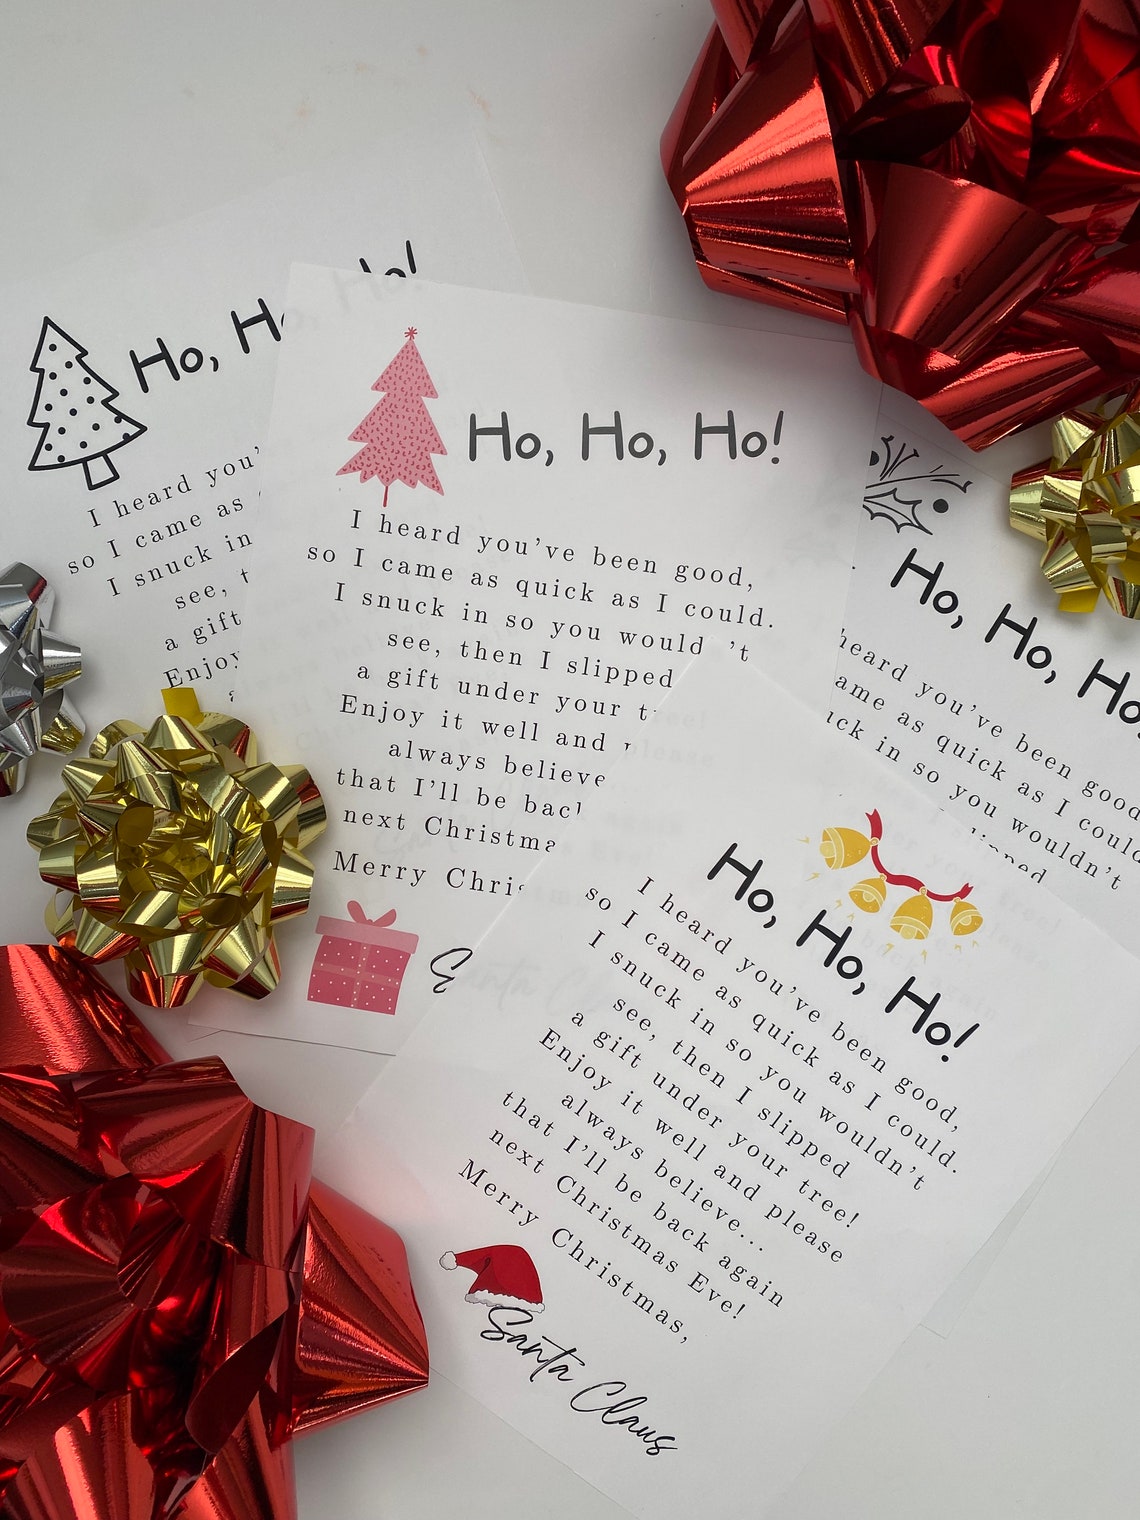 Ho, Ho, Ho!
I heard you'
so I came as
I snuck in
see, t
a gift
Enjoy
Ho, Ho, Ho!
I heard you've been good,
so I came as quick as I could.
I snuck in so you would 't
see, then I slipped
a gift under your tree!
Enjoy it well and please
always believe
that I'll be back
next Christma
Merry Chris
Santa
Ho, Ho, Ho
heard you've been good
ame as quick as I could
uck in so you wouldn't
slipped
Ho, Ho, Ho!
I heard you've been good,
so I came as quick as I could.
I snuck in so you wouldn't
see, then I slipped
a gift under your tree!
Enjoy it well and please
always believe...
that I'll be back again
next Christmas Eve!
Merry Christmas,
Santa Claus